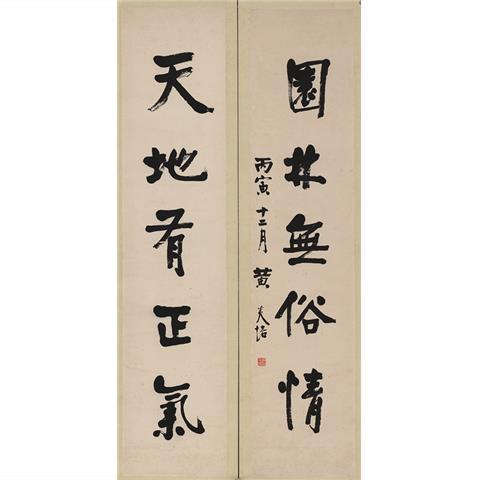 園林無俗情
丙寅十二月黃炎培
天地有正氣